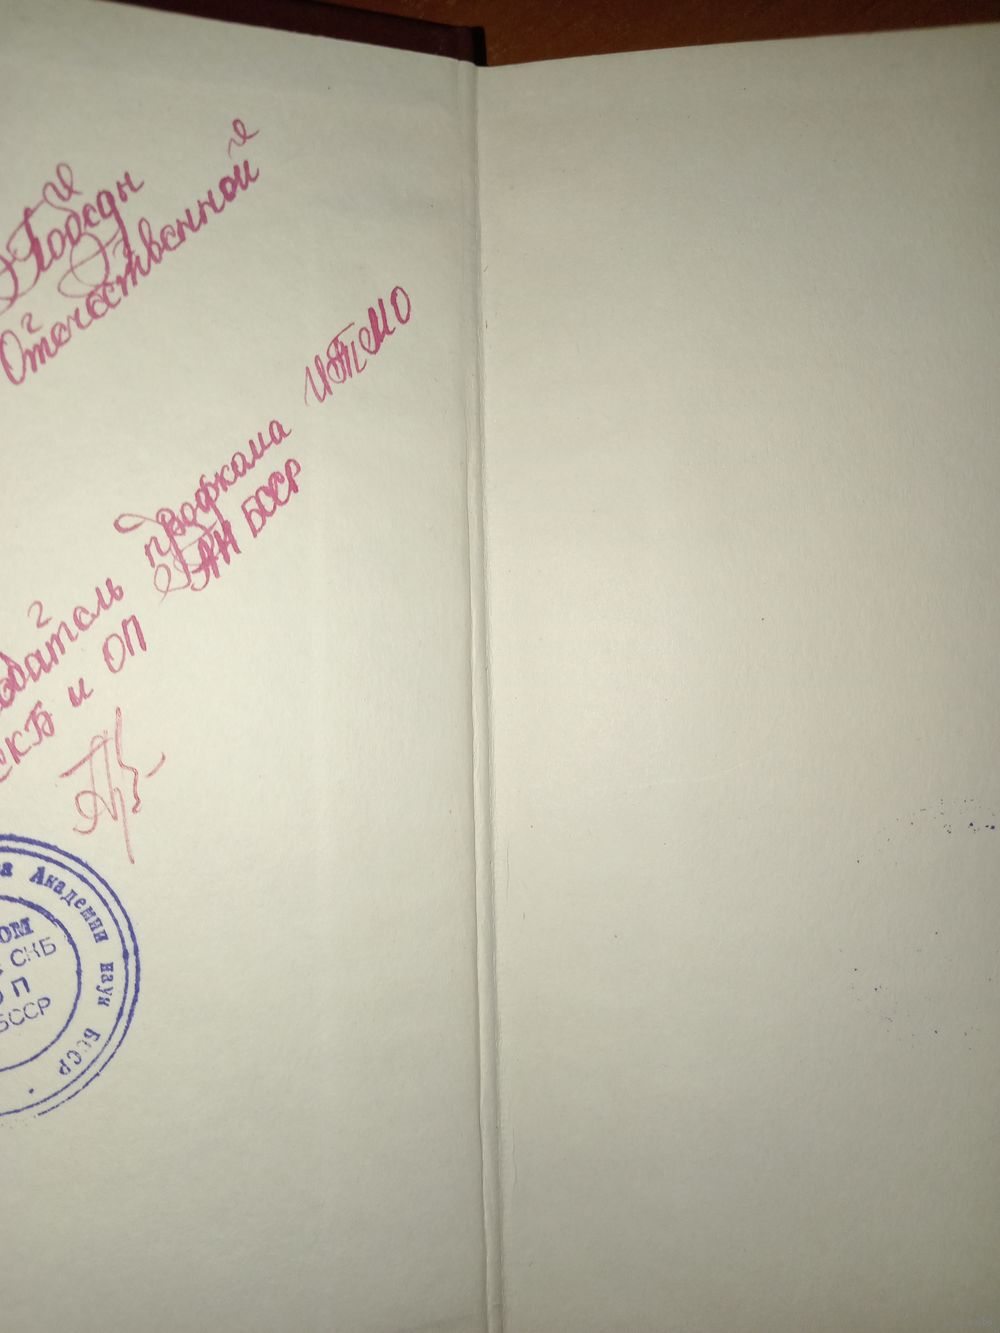 Победы
Отечественной
профкома ИТМО
АН БССР
СКБ и ОП
Академии наук БССР
СКБ
П
БССР